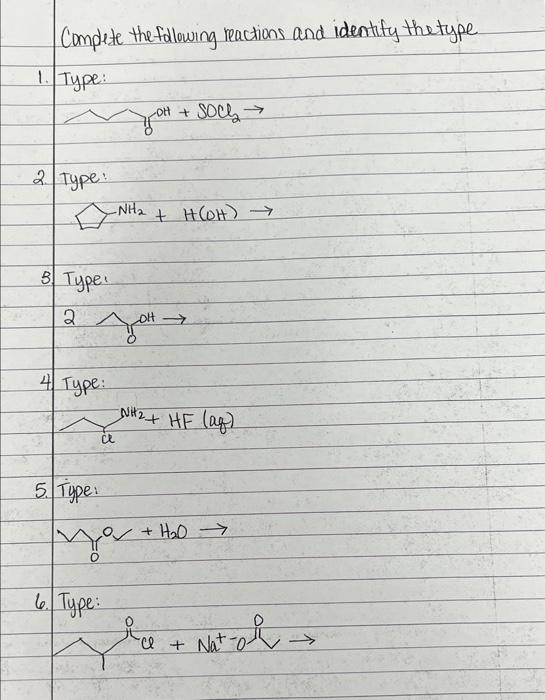 Complete the following reactions and identify the type
1. Type:
OH + SOCl₂ →
O
2. Type:
NH₂ + H(OH) →
3. Type:
2 OH →
O
4. Type:
NH₂ + HF (aq)
Cl
5. Type:
O + H₂O →
O
6. Type:
O O
Cl + Na⁺ ⁻O →